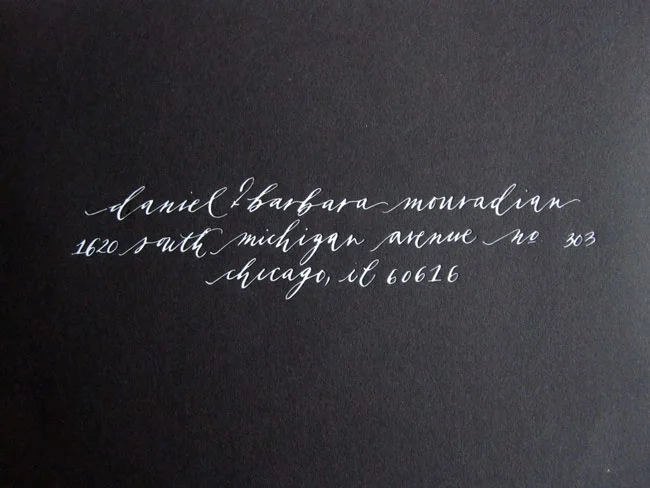 daniel & barbara mouradian
1620 south michigan avenue no 303
chicago, il 60616